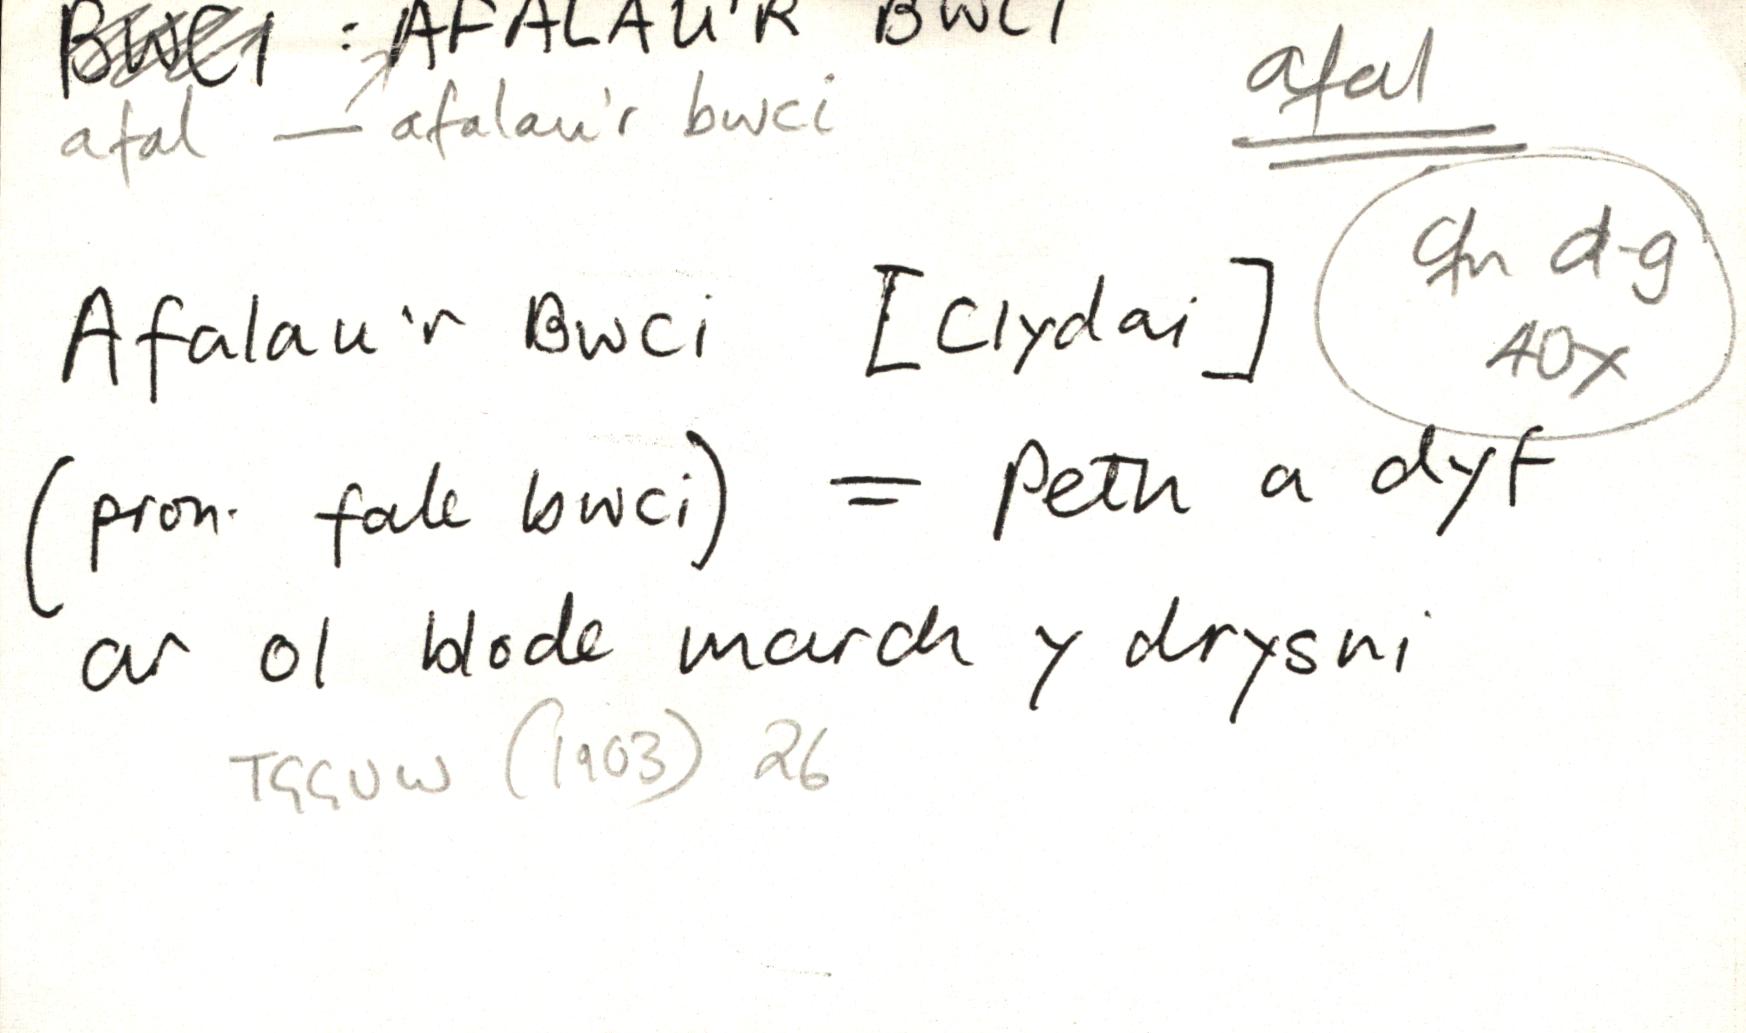 BWCI : AFALAU'R BWCI
afal
afal — afalau'r bwci
cfn d-g
40x
Afalau'r Bwci [Clydai]
(pron. fale bwci) = Peth a dyf
ar ol blode march y drysni
TGGUW (1903) 26